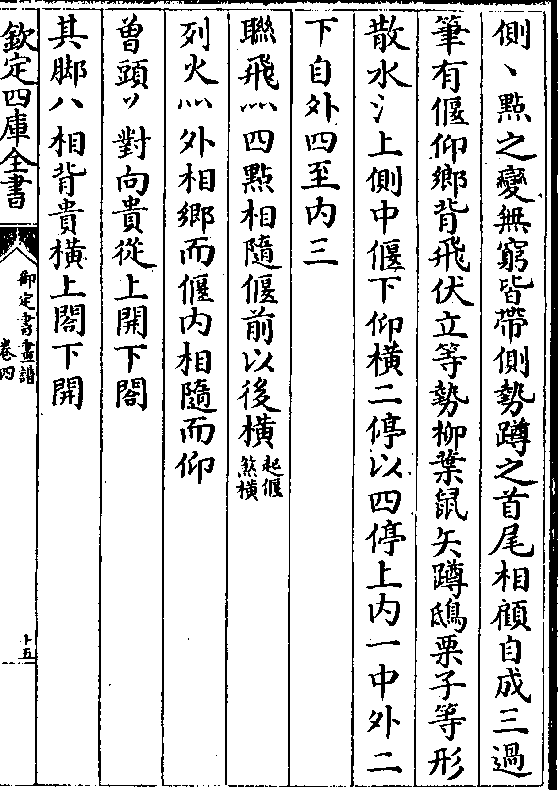 側丶點之變無窮皆帶側勢蹲之首尾相顧自成三過
筆有偃仰鄉背飛伏立等勢柳葉鼠矢蹲鴟栗子等形
散水氵上側中偃下仰橫二停以四停上内一中外二
下自外四至内三
聯飛灬四點相隨偃前以後橫起偃煞橫
列火灬外相鄉而偃内相隨而仰
曾頭丷對向貴從上開下閤
其脚八相背貴橫上閤下開
欽定四庫全書
御定書畫譜
卷四
十五